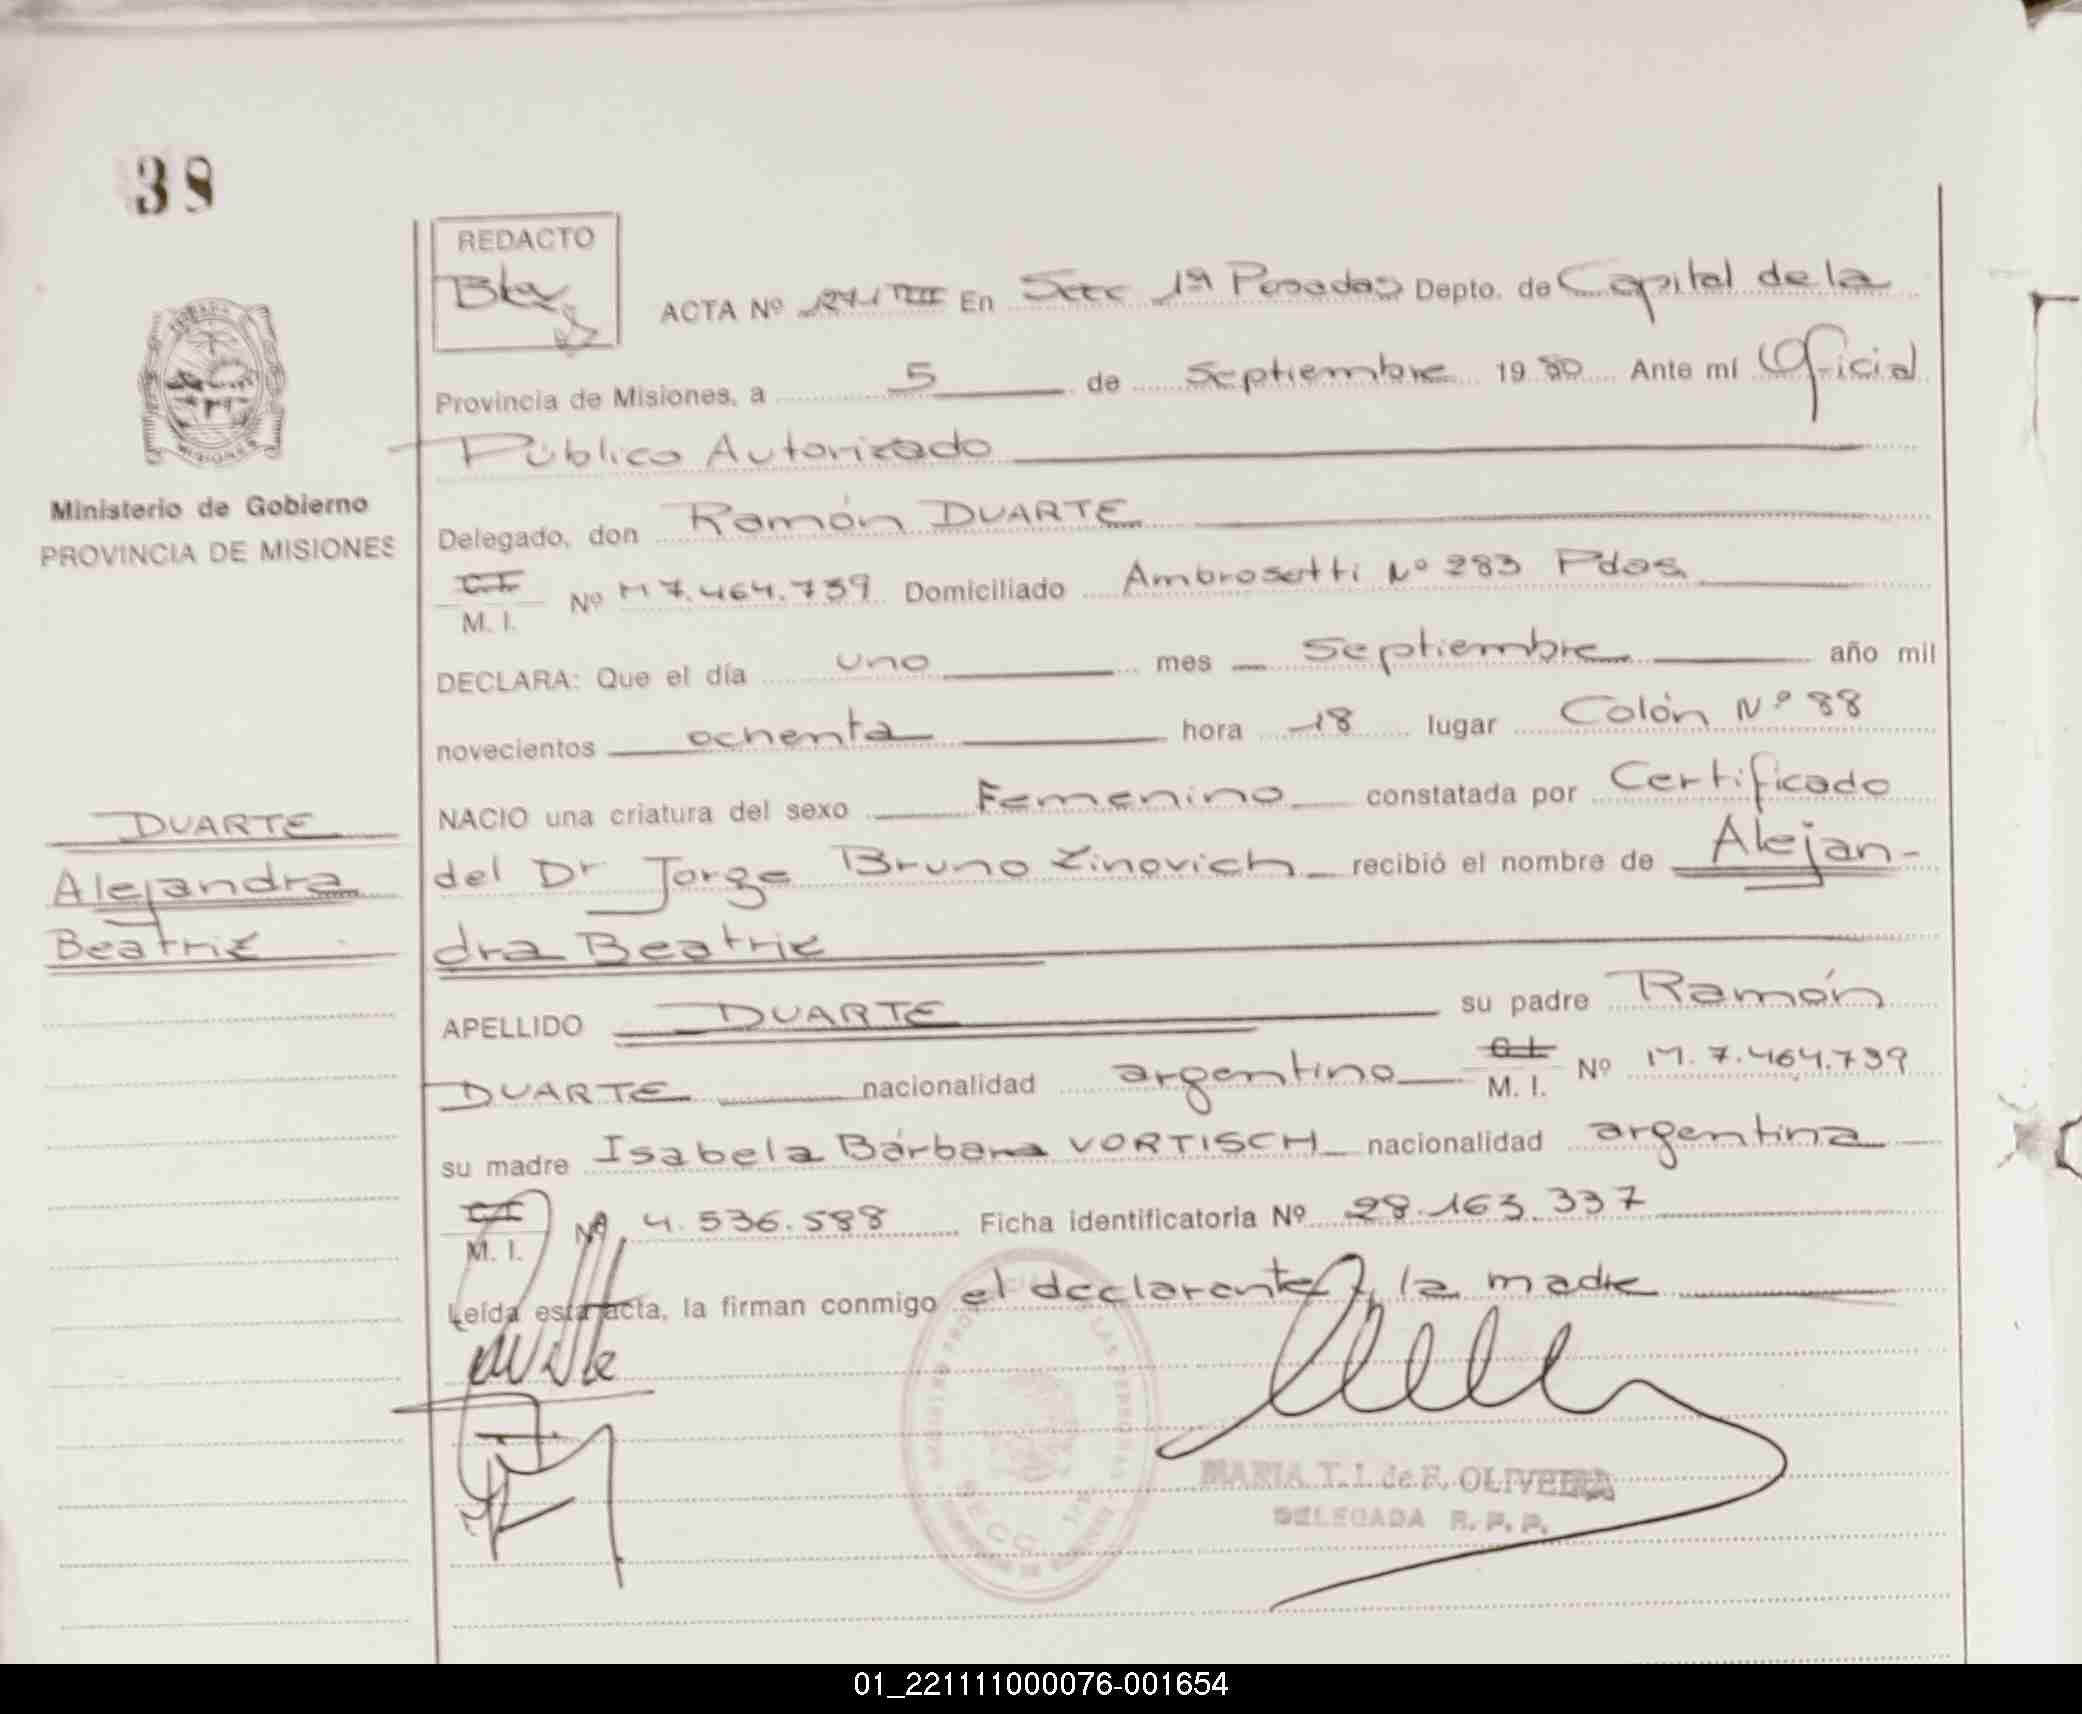 38
REDACTO
ACTA Nº En Secc 1ª Posadas Depto. de Capital de la
Provincia de Misiones, a 5 de Septiembre 19 80 Ante mí Oficial
Público Autorizado
Ministerio de Gobierno
PROVINCIA DE MISIONES
Delegado, don Ramón DUARTE
C.I.
M. I. Nº M 7.464.739 Domiciliado Ambrosetti Nº 283 Pdas
DECLARA: Que el día uno mes Septiembre año mil
novecientos ochenta hora 18 lugar Colón Nº 88
NACIO una criatura del sexo Femenino constatada por Certificado
DUARTE
Alejandra
Beatriz
del Dr Jorge Bruno Zinovich recibió el nombre de Alejan-
dra Beatriz
APELLIDO DUARTE su padre Ramón
DUARTE nacionalidad argentino C.I. M. I. Nº M. 7.464.739
su madre Isabela Bárbara VORTISCH nacionalidad argentina
C.I.
M. I. Nº 4.536.588 Ficha identificatoria Nº 28.163.337
Leída esta acta, la firman conmigo el declarante y la madre
MARIA T. I. de F. OLIVEIRA
DELEGADA R. P. P.
01_221111000076-001654